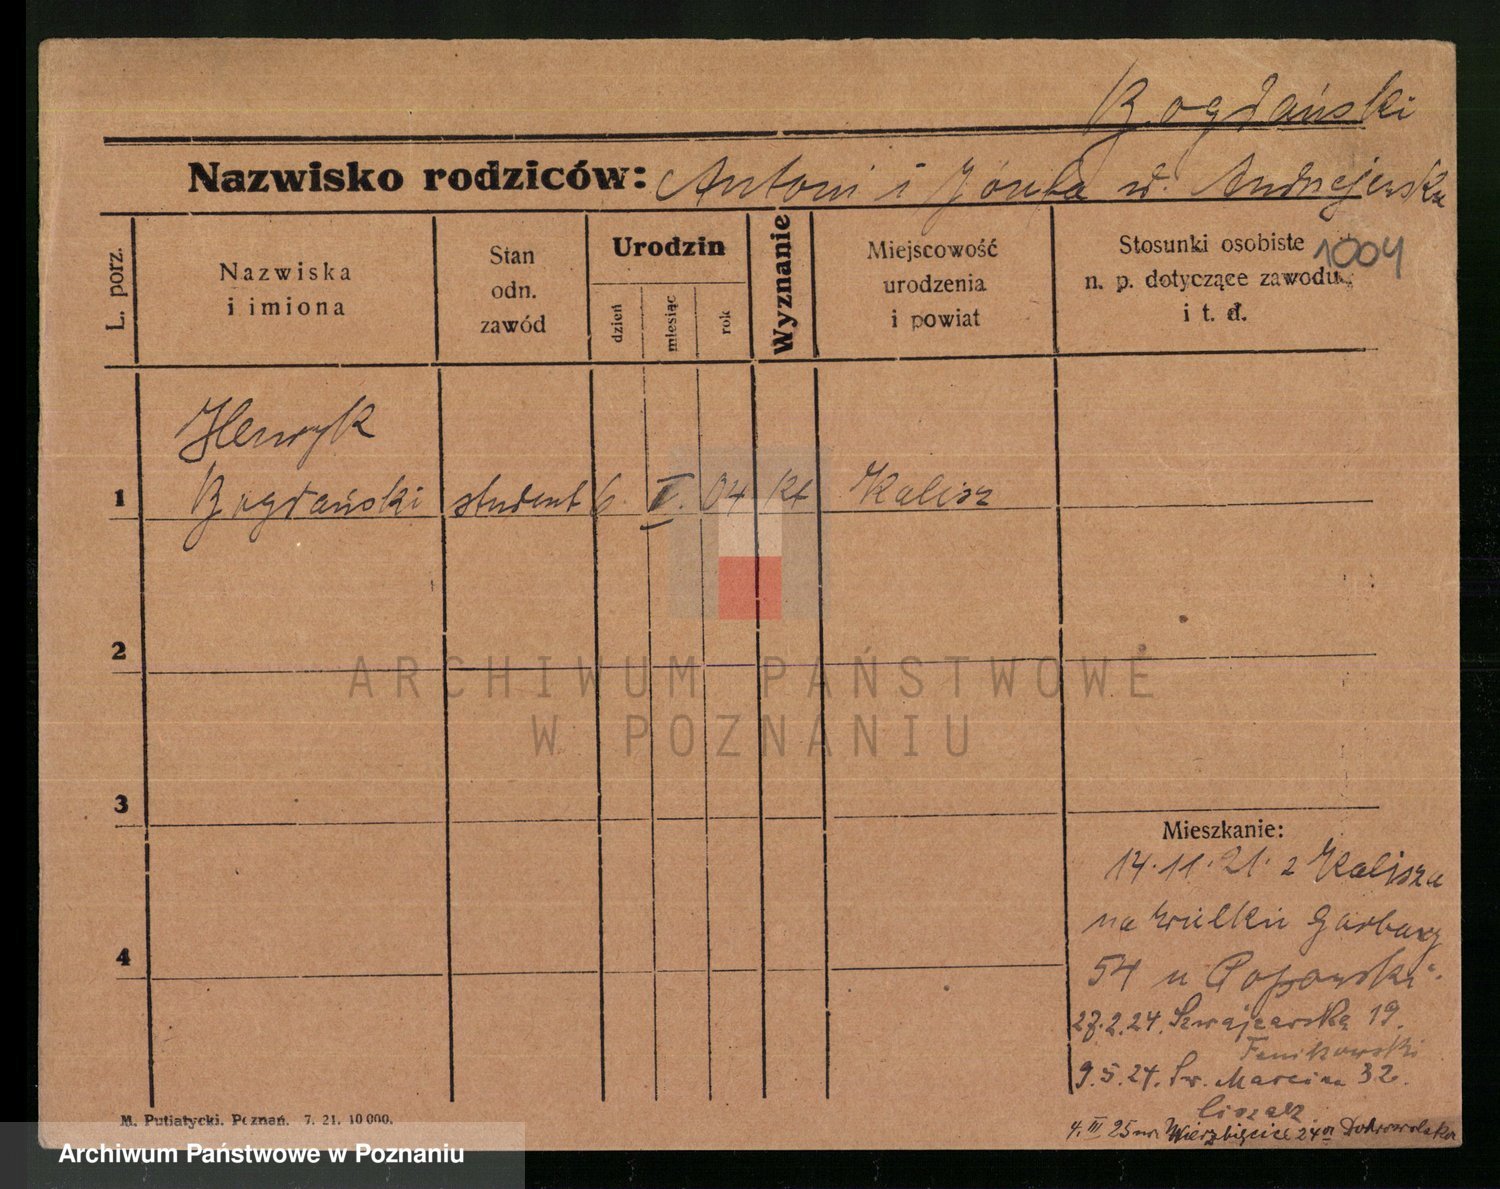 Bogdański
Nazwisko rodziców: Antoni i Józefa d. Andrzejewska
1004
L. porz.
Nazwiska
i imiona
Stan
odn.
zawód
Urodzin
dzień
miesiąc
rok
Wyznanie
Miejscowość
urodzenia
i powiat
Stosunki osobiste
n. p. dotyczące zawodu
i t. d.
Henryk
1 Bogdański student 6. 04 kt Kalisz
2
3
4
Mieszkanie:
14.11.21. z Kalisza
na Wielkie Garbary
54 u Popowski
27.2.24. Szwajcarska 19.
Fenikowski
9.5.24. Św. Marcina 32.
4. III 25 Wierzbięcice 24
M. Putiatycki. Poznań. 7. 21. 10 000.
ARCHIWUM PAŃSTWOWE
W POZNANIU
Archiwum Państwowe w Poznaniu